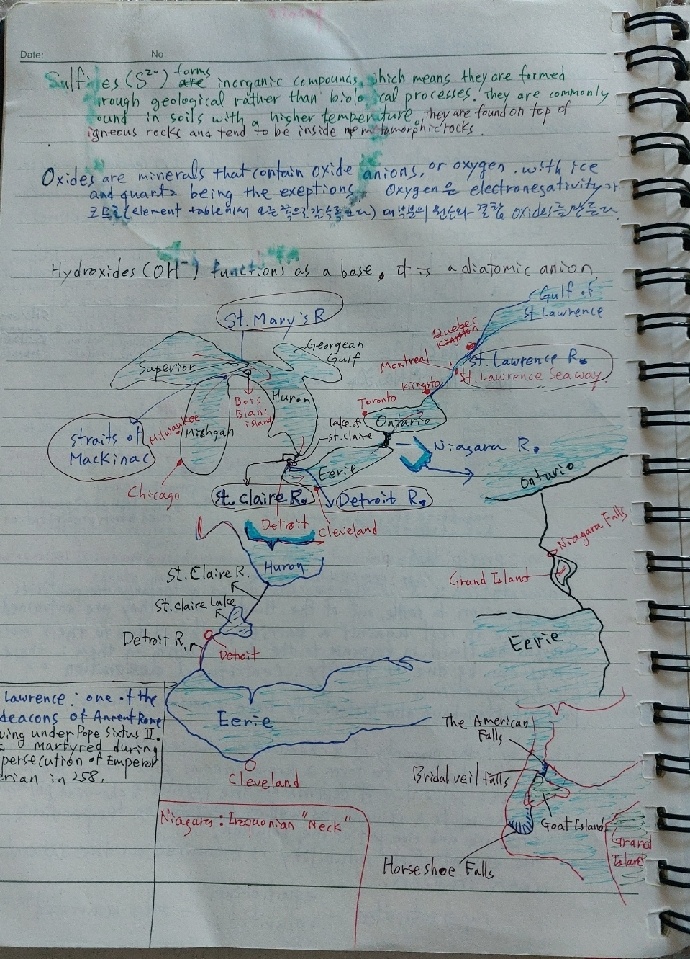 Date:
No
Sulfides (S2-) forms are inorganic compounds, which means they are formed
through geological rather than biological processes. They are commonly
found in soils with a higher temperature. they are found on top of
igneous rocks and tend to be inside metamorphic rocks.
Oxides are minerals that contain oxide anions, or oxygen. with ice
and quartz being the exeptions. Oxygen은 electronegativity가
(element table에서 대부분의 원소와 결합 oxides를 만든다.
Hydroxides (OH-) functions as a base, it is a diatomic anion.
Gulf of
St. Lawrence
St. Mary's R
Georgean
Gulf
Quebec
Kingston
Superior
Montreal
St. Lawrence R.
St. Lawrence Seaway.
Bois
Blanc
island
Huron
Kingston
Toronto
Ontario
Straits of
Mackinac
Milwaukee
Michgan
Lake of
St. Claire
Niagara R.
Eerie
Ontario
Chicago
St. Claire R.
Detroit R.
Detroit
Cleveland
Niagara Falls
Huron
St. Claire R.
Grand Island
St. Claire Lake
Detroit R.
Detroit
Eerie
Lawrence : one of the
deacons of Ancient Rome
ving under Pope Sixtus II.
martyred during
persecution of Emperor
rian in 258.
Eerie
The American
Falls
Bridal veil falls
Cleveland
Goat Island
Niagara : Iroquonian "Neck"
Grand
Island
Horseshoe Falls